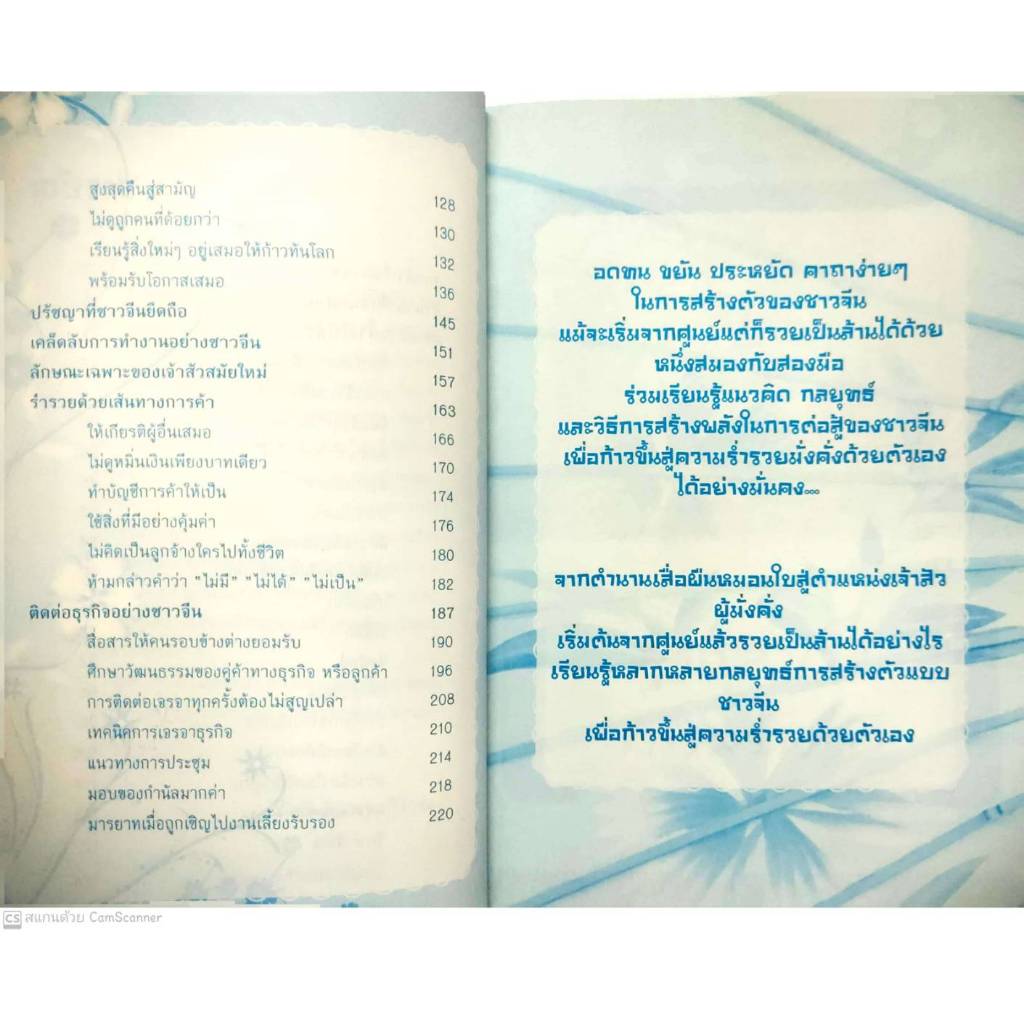 สูงสุดคืนสู่สามัญ 128
ไม่ดูถูกคนที่ด้อยกว่า 130
เรียนรู้สิ่งใหม่ๆ อยู่เสมอให้ก้าวทันโลก 132
พร้อมรับโอกาสเสมอ 136
ปรัชญาที่ชาวจีนยึดถือ 145
เคล็ดลับการทำงานอย่างชาวจีน 151
ลักษณะเฉพาะของเจ้าสัวสมัยใหม่ 157
ร่ำรวยด้วยเส้นทางการค้า 163
ให้เกียรติผู้อื่นเสมอ 166
ไม่ดูหมิ่นเงินเพียงบาทเดียว 170
ทำบัญชีการค้าให้เป็น 174
ใช้สิ่งที่มีอย่างคุ้มค่า 176
ไม่คิดเป็นลูกจ้างใครไปทั้งชีวิต 180
ห้ามกล่าวคำว่า "ไม่มี" "ไม่ได้" "ไม่เป็น" 182
ติดต่อธุรกิจอย่างชาวจีน 187
สื่อสารให้คนรอบข้างต่างยอมรับ 190
ศึกษาวัฒนธรรมของคู่ค้าทางธุรกิจ หรือลูกค้า 196
การติดต่อเจรจาทุกครั้งต้องไม่สูญเปล่า 208
เทคนิคการเจรจาธุรกิจ 210
แนวทางการประชุม 214
มอบของกำนัลมากค่า 218
มารยาทเมื่อถูกเชิญไปงานเลี้ยงรับรอง 220
อดทน ขยัน ประหยัด คาถาง่ายๆ
ในการสร้างตัวของชาวจีน
แม้จะเริ่มจากศูนย์แต่ก็รวยเป็นล้านได้ด้วย
หนึ่งสมองกับสองมือ
ร่วมเรียนรู้แนวคิด กลยุทธ์
และวิธีการสร้างพลังในการต่อสู้ของชาวจีน
เพื่อก้าวขึ้นสู่ความร่ำรวยมั่งคั่งด้วยตัวเอง
ได้อย่างมั่นคง...
จากตำนานเสื่อผืนหมอนใบสู่ตำแหน่งเจ้าสัว
ผู้มั่งคั่ง
เริ่มต้นจากศูนย์แล้วรวยเป็นล้านได้อย่างไร
เรียนรู้หลากหลายกลยุทธ์การสร้างตัวแบบ
ชาวจีน
เพื่อก้าวขึ้นสู่ความร่ำรวยด้วยตัวเอง
CS สแกนด้วย CamScanner